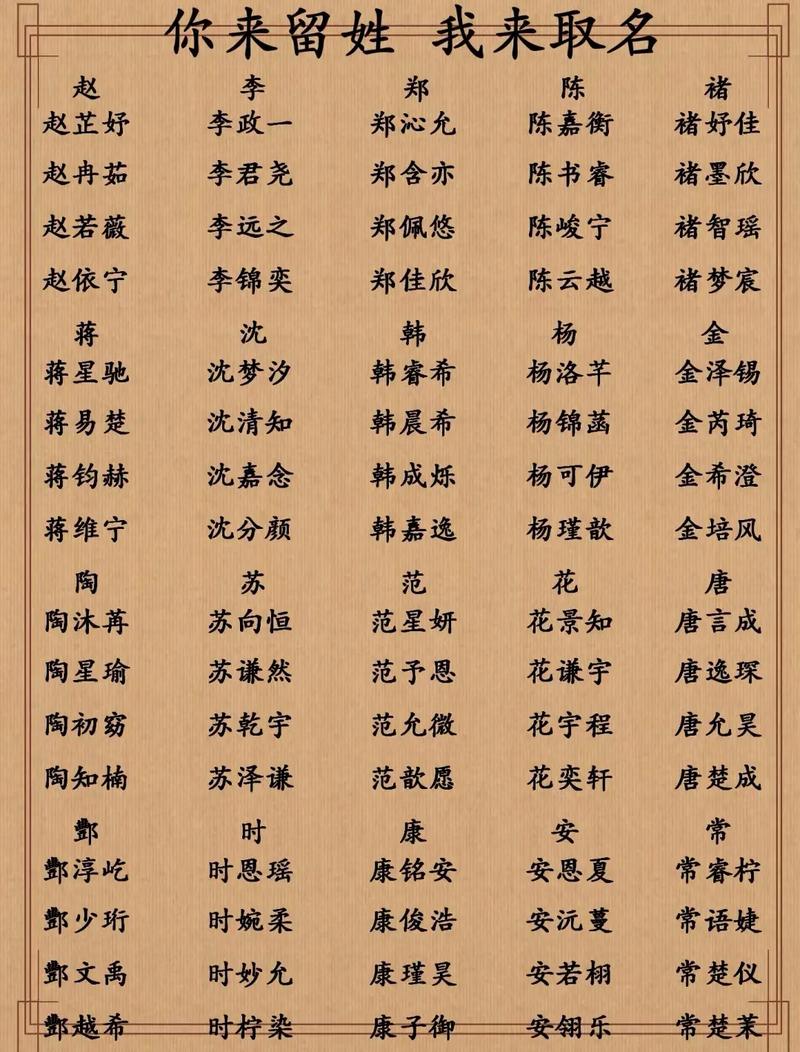 你来留姓 我来取名
赵 李 郑 陈 褚
赵芷妤 李政一 郑沁允 陈嘉衡 褚妤佳
赵冉茹 李君尧 郑含亦 陈书睿 褚墨欣
赵若薇 李远之 郑佩悠 陈峻宁 褚智瑶
赵依宁 李锦奕 郑佳欣 陈云越 褚梦宸
蒋 沈 韩 杨 金
蒋星驰 沈梦汐 韩睿希 杨洛芊 金泽锡
蒋易楚 沈清知 韩晨希 杨锦菡 金芮琦
蒋钧赫 沈嘉念 韩成烁 杨可伊 金希澄
蒋维宁 沈分颜 韩嘉逸 杨瑾歆 金培风
陶 苏 范 花 唐
陶沐苒 苏向恒 范星妍 花景知 唐言成
陶星瑜 苏谦然 范予恩 花谦宇 唐逸琛
陶初窈 苏乾宇 范允微 花宇程 唐允昊
陶知楠 苏泽谦 范歆愿 花奕轩 唐楚成
酆 时 康 安 常
酆淳屹 时恩瑶 康铭安 安恩夏 常睿柠
酆少珩 时婉柔 康俊浩 安沅蔓 常语婕
酆文禹 时妙允 康瑾昊 安若栩 常楚仪
酆越希 时柠染 康子御 安翎乐 常楚茉